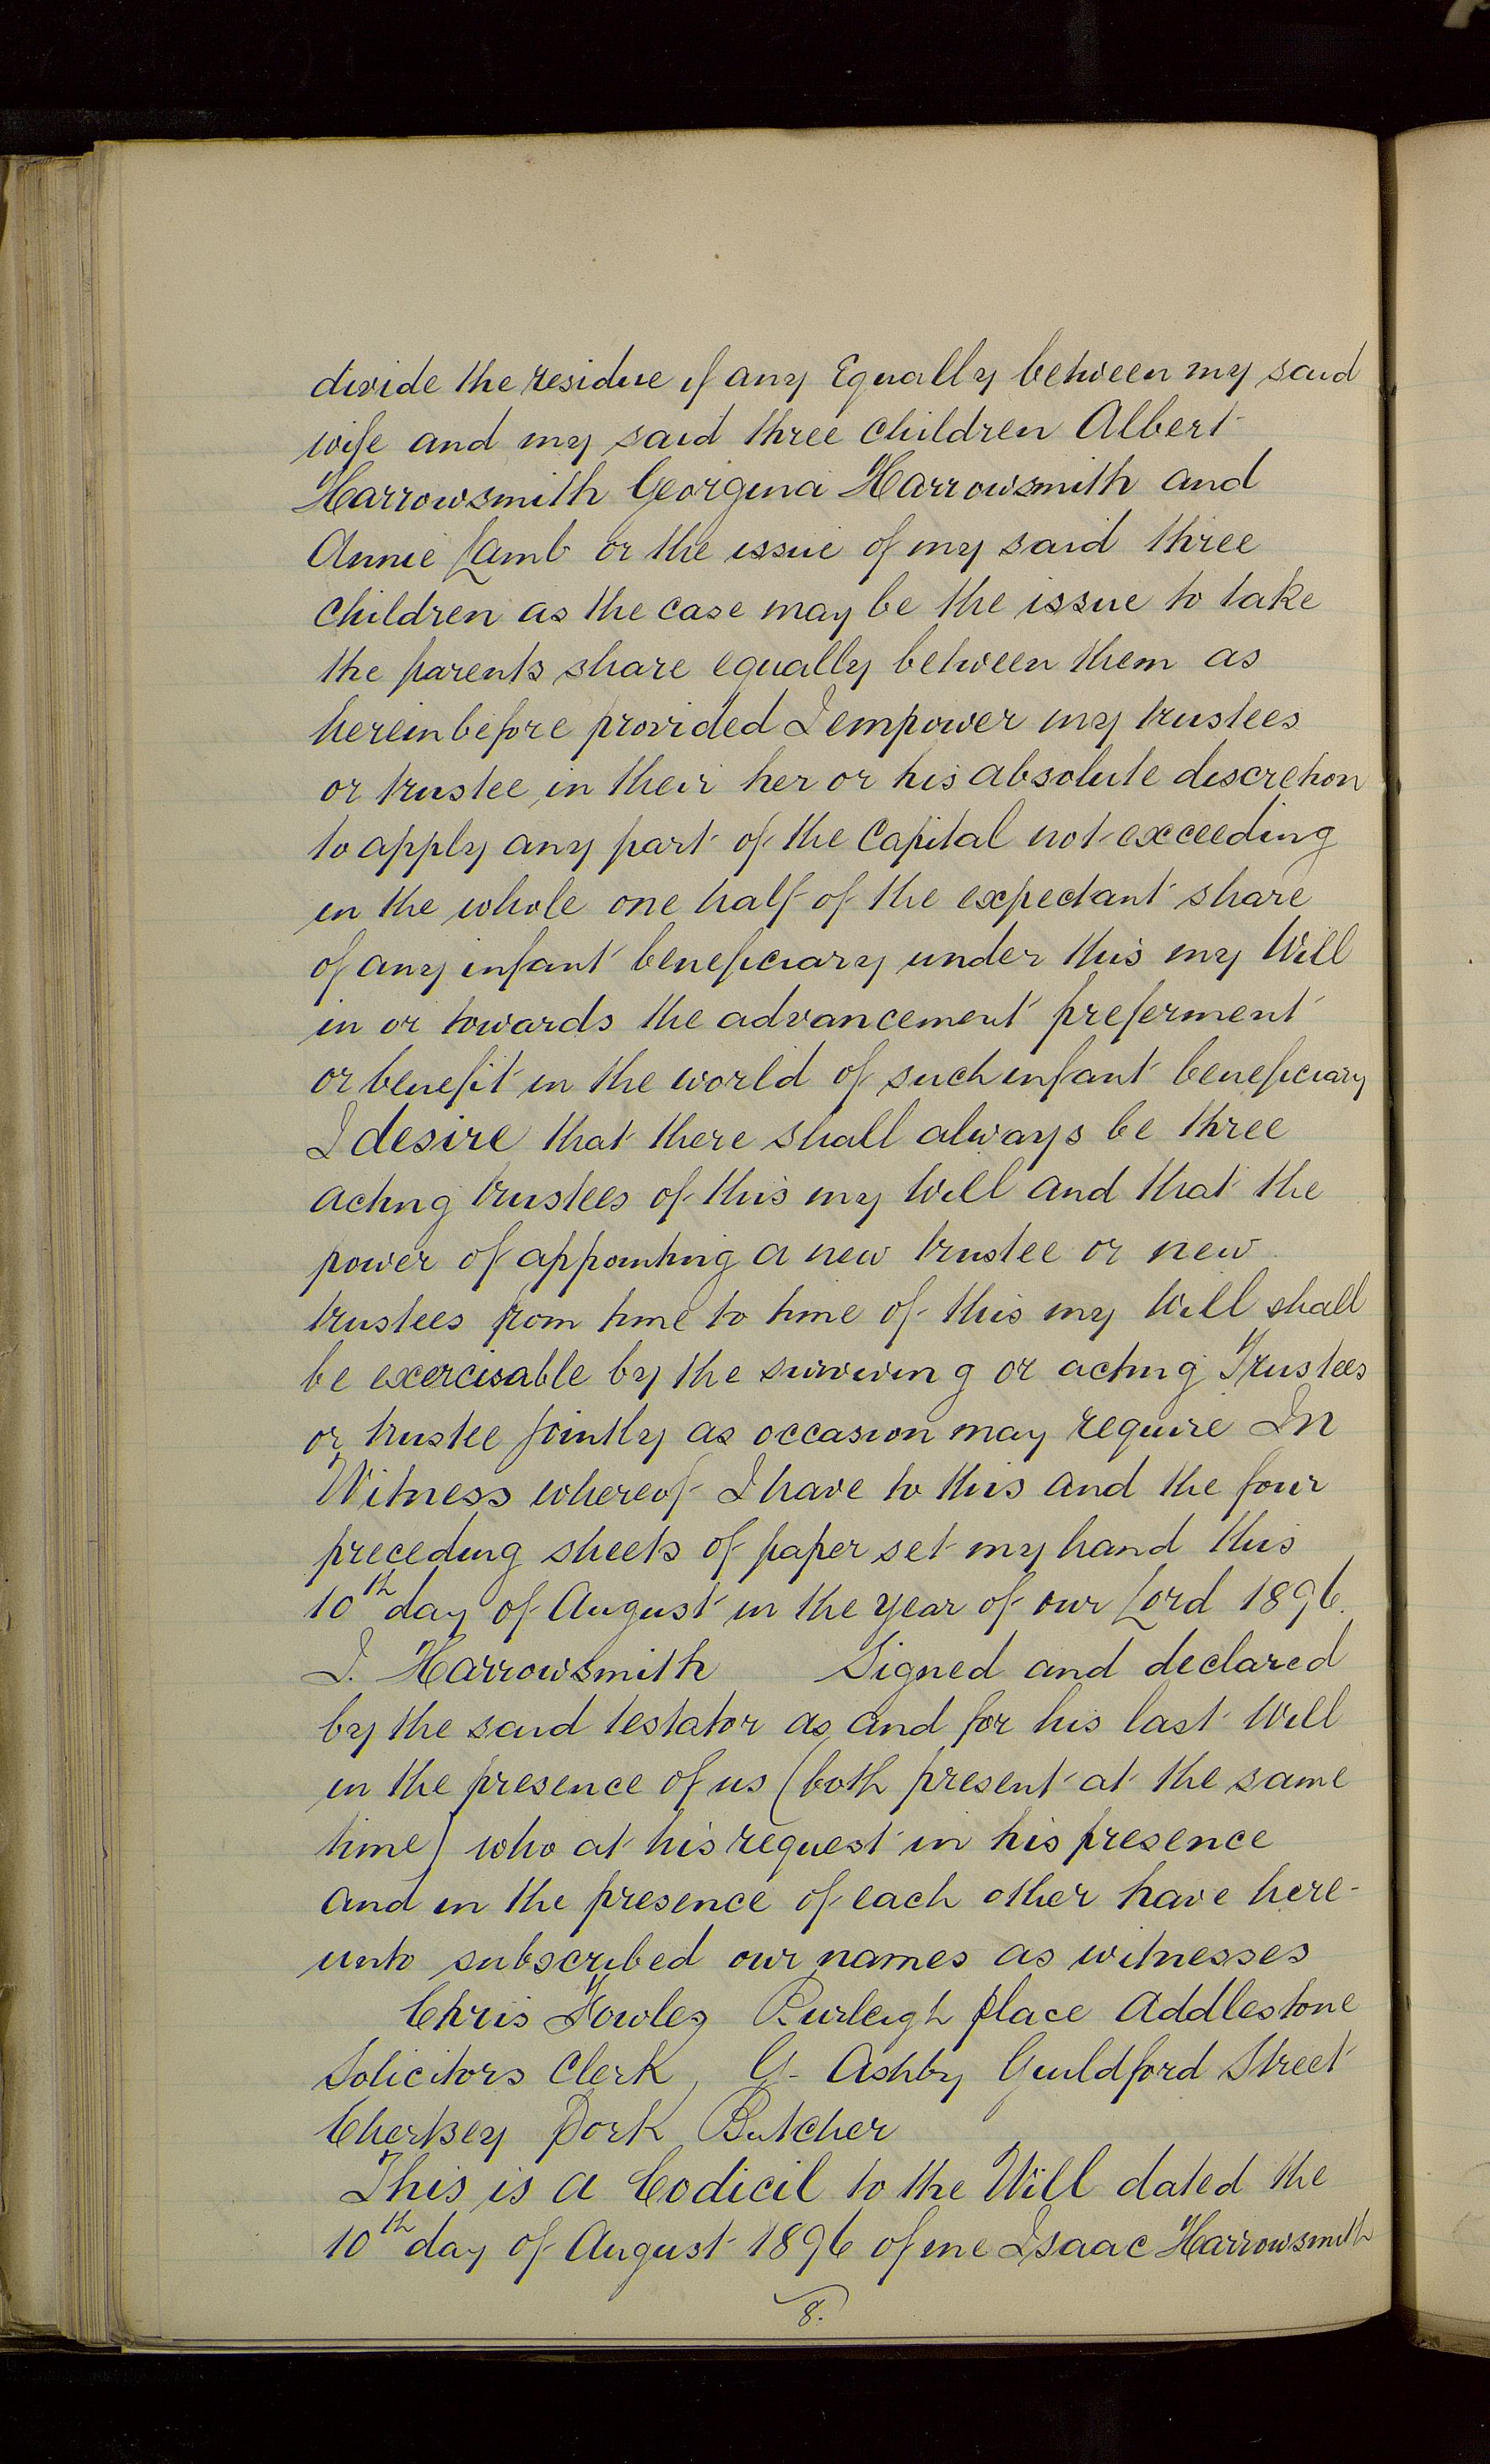 divide the residue if any Equally between my said
wife and my said three children Albert
Harrowsmith Georgina Harrowsmith and
Annie Lamb or the issue of my said three
children as the case may be the issue to take
the parents share equally between them as
hereinbefore provided I empower my trustees
or trustee in their her or his absolute discretion
to apply any part of the Capital not exceeding
in the whole one half of the expectant share
of any infant beneficiary under this my Will
in or towards the advancement preferment
or benefit in the world of such infant beneficiary
I desire that there shall always be three
acting trustees of this my Will and that the
power of appointing a new trustee or new
trustees from time to time of this my Will shall
be exercisable by the surviving or acting Trustees
or trustee jointly as occasion may require In
Witness whereof I have to this and the four
preceding sheets of paper set my hand this
10th day of August in the year of our Lord 1896.
I. Harrowsmith Signed and declared
by the said testator as and for his last Will
in the presence of us (both present at the same
time) who at his request in his presence
and in the presence of each other have here-
unto subscribed our names as witnesses
Chris Fowles Burleigh place Addlestone
Solicitors Clerk, G. Ashby Guildford Street
Chertsey Pork Butcher
This is a Codicil to the Will dated the
10th day of August 1896 of me Isaac Harrowsmith
8.